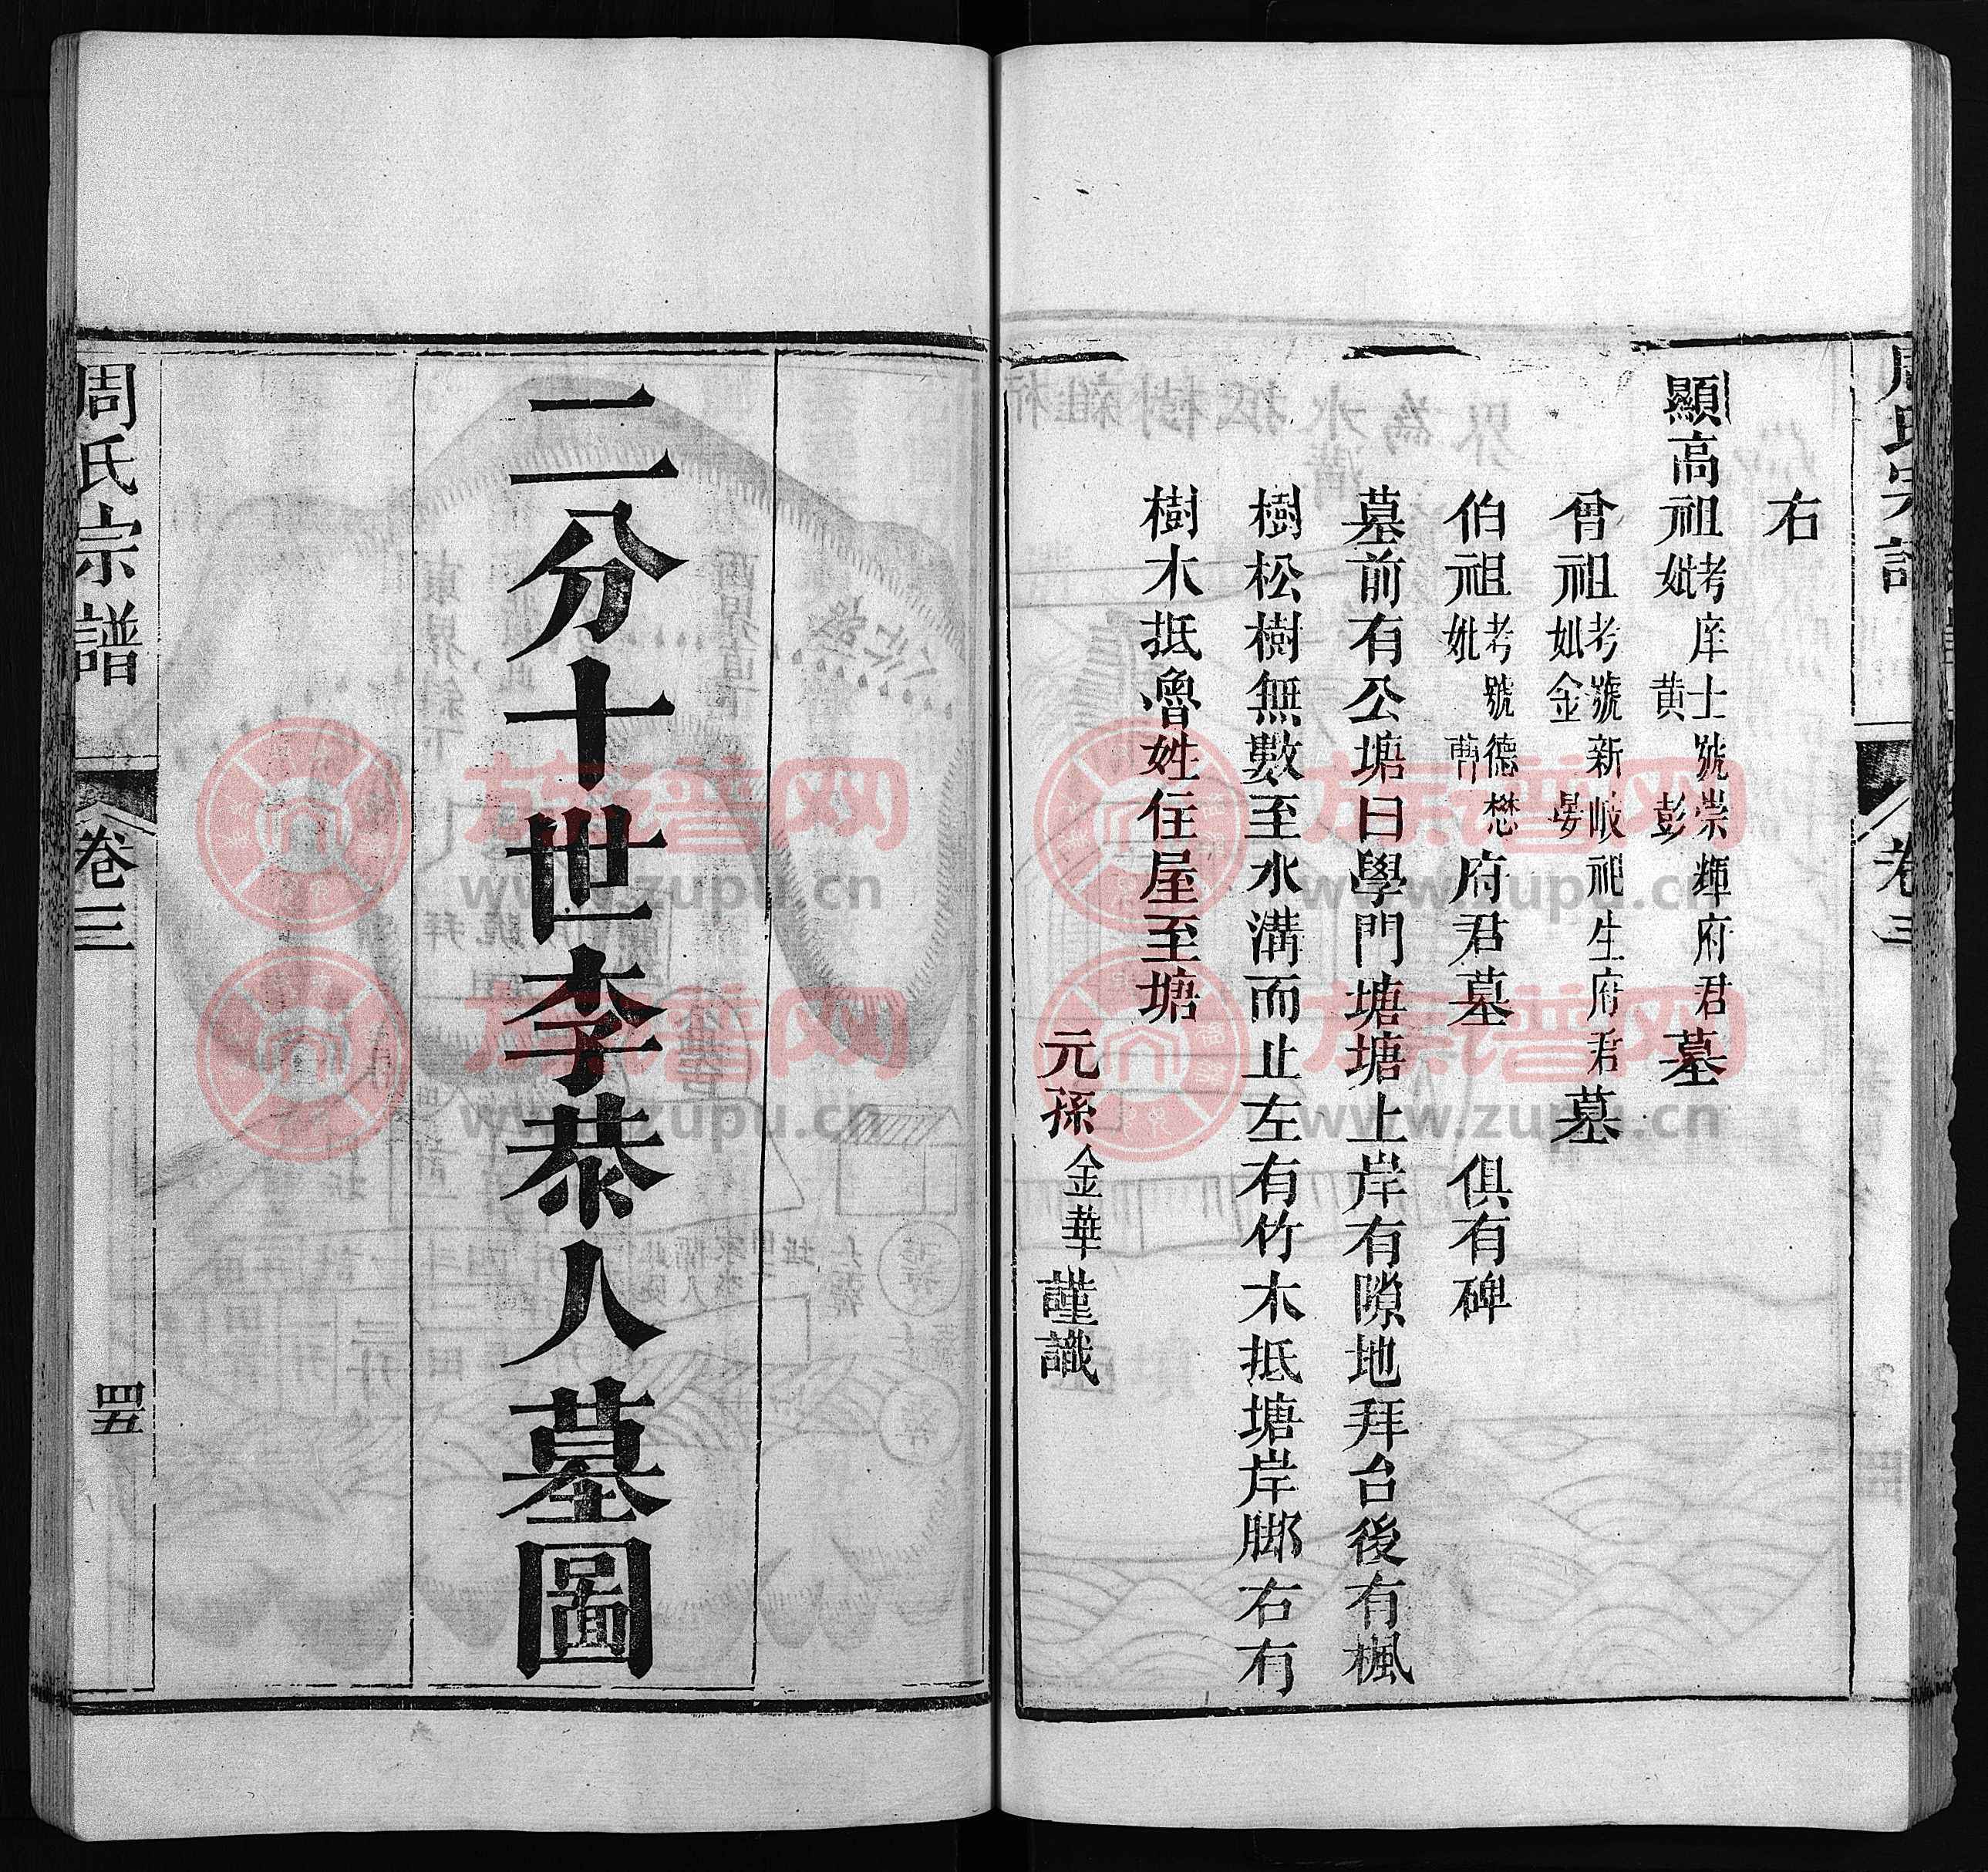 周氏宗譜
卷三
右
顯高祖考庠士號崇輝府君墓
妣黄彭
曾祖考號新岐祀生府君墓
妣金晏
伯祖考號德懋府君墓 俱有碑
妣曹
墓前有公塘曰學門塘塘上岸有隙地拜台後有楓
樹松樹無數至水溝而止左有竹木抵塘岸脚右有
樹木抵魯姓住屋至塘
元孫金華謹識
二分十世李恭人墓圖
周氏宗譜
卷三
四五
族谱网
www.zupu.cn
族谱网
www.zupu.cn
族谱网
www.zupu.cn
族谱网
www.zupu.cn